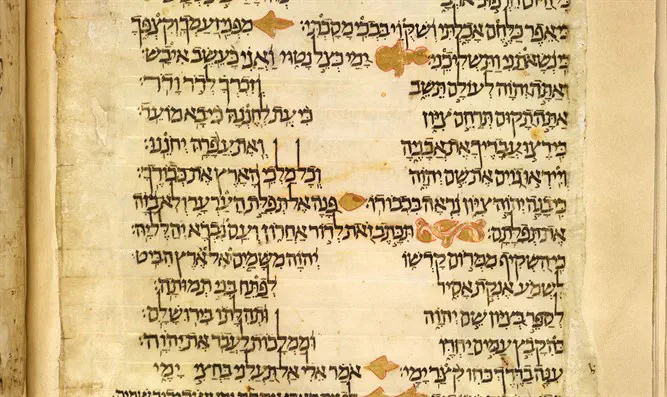 כי אפר כלחם אכלתי ושקוי בבכי מסכתי: מפני זעמך וקצפך
כי נשאתני ותשליכני: ימי כצל נטוי ואני כעשב איבש:
ואתה יהוה לעולם תשב וזכרך לדר ודר:
אתה תקום תרחם ציון כי עת לחננה כי בא מועד:
כי רצו עבדיך את אבניה ואת עפרה יחננו:
וייראו גוים את שם יהוה וכל מלכי הארץ את כבודך:
כי בנה יהוה ציון נראה בכבודו: פנה אל תפלת הערער ולא בזה
את תפלתם: תכתב זאת לדור אחרון ועם נברא יהלל יה:
כי השקיף ממרום קדשו יהוה משמים אל ארץ הביט
לשמע אנקת אסיר לפתח בני תמותה:
לספר בציון שם יהוה ותהלתו בירושלם:
בהקבץ עמים יחדו וממלכות לעבד את יהוה:
ענה בדרך כחו קצר ימי: אמר אלי אל תעלני בחצי ימי